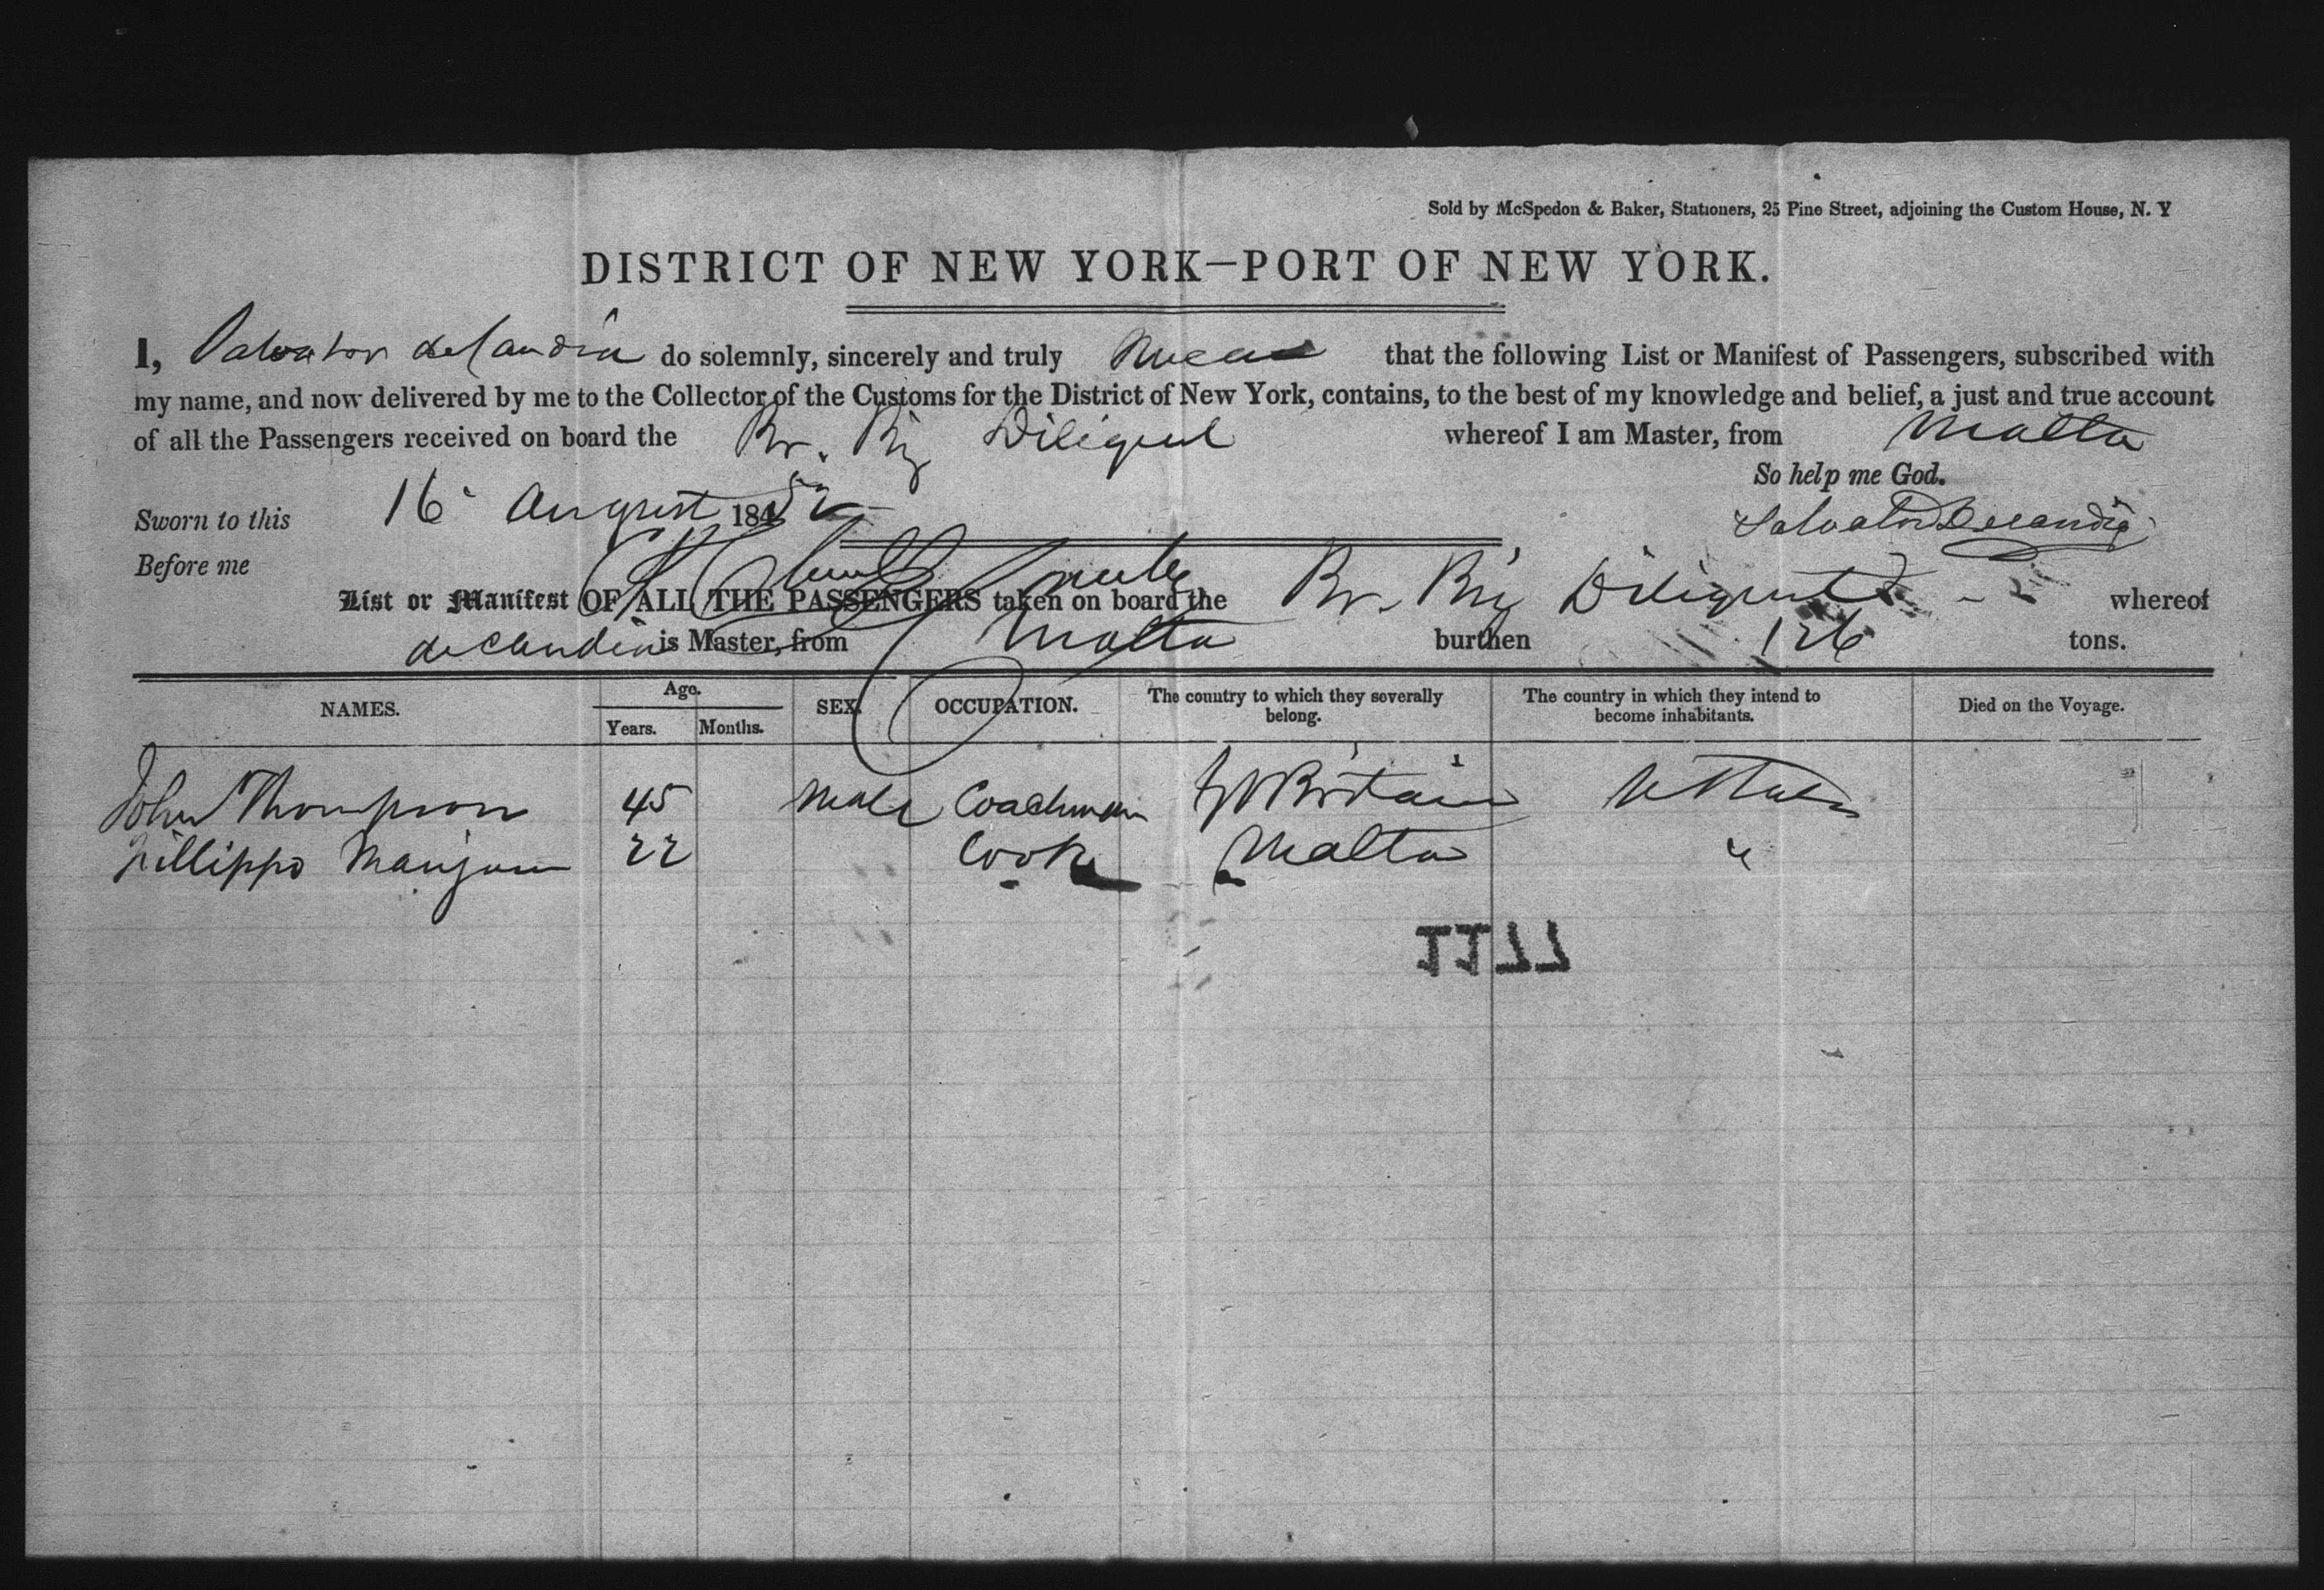 Sold by McSpedon & Baker, Stationers, 25 Pine Street, adjoining the Custom House, N. Y
DISTRICT OF NEW YORK—PORT OF NEW YORK.
I, Salvator deCandia do solemnly, sincerely and truly swear that the following List or Manifest of Passengers, subscribed with
my name, and now delivered by me to the Collector of the Customs for the District of New York, contains, to the best of my knowledge and belief, a just and true account
of all the Passengers received on board the Br. Brig Diligent whereof I am Master, from Malta
So help me God.
Sworn to this 16 August 1852
Salvatore Decandia
Before me
List or Manifest OF ALL THE PASSENGERS taken on board the Br. Brig Diligent whereof
deCandia is Master, from Malta burthen 126 tons.
NAMES. Age. Years. Months. SEX. OCCUPATION. The country to which they severally belong. The country in which they intend to become inhabitants. Died on the Voyage.
John Thompson 45 Male Coachman Gt Britain U States
Fillippo 22 Cook Malta "
1177